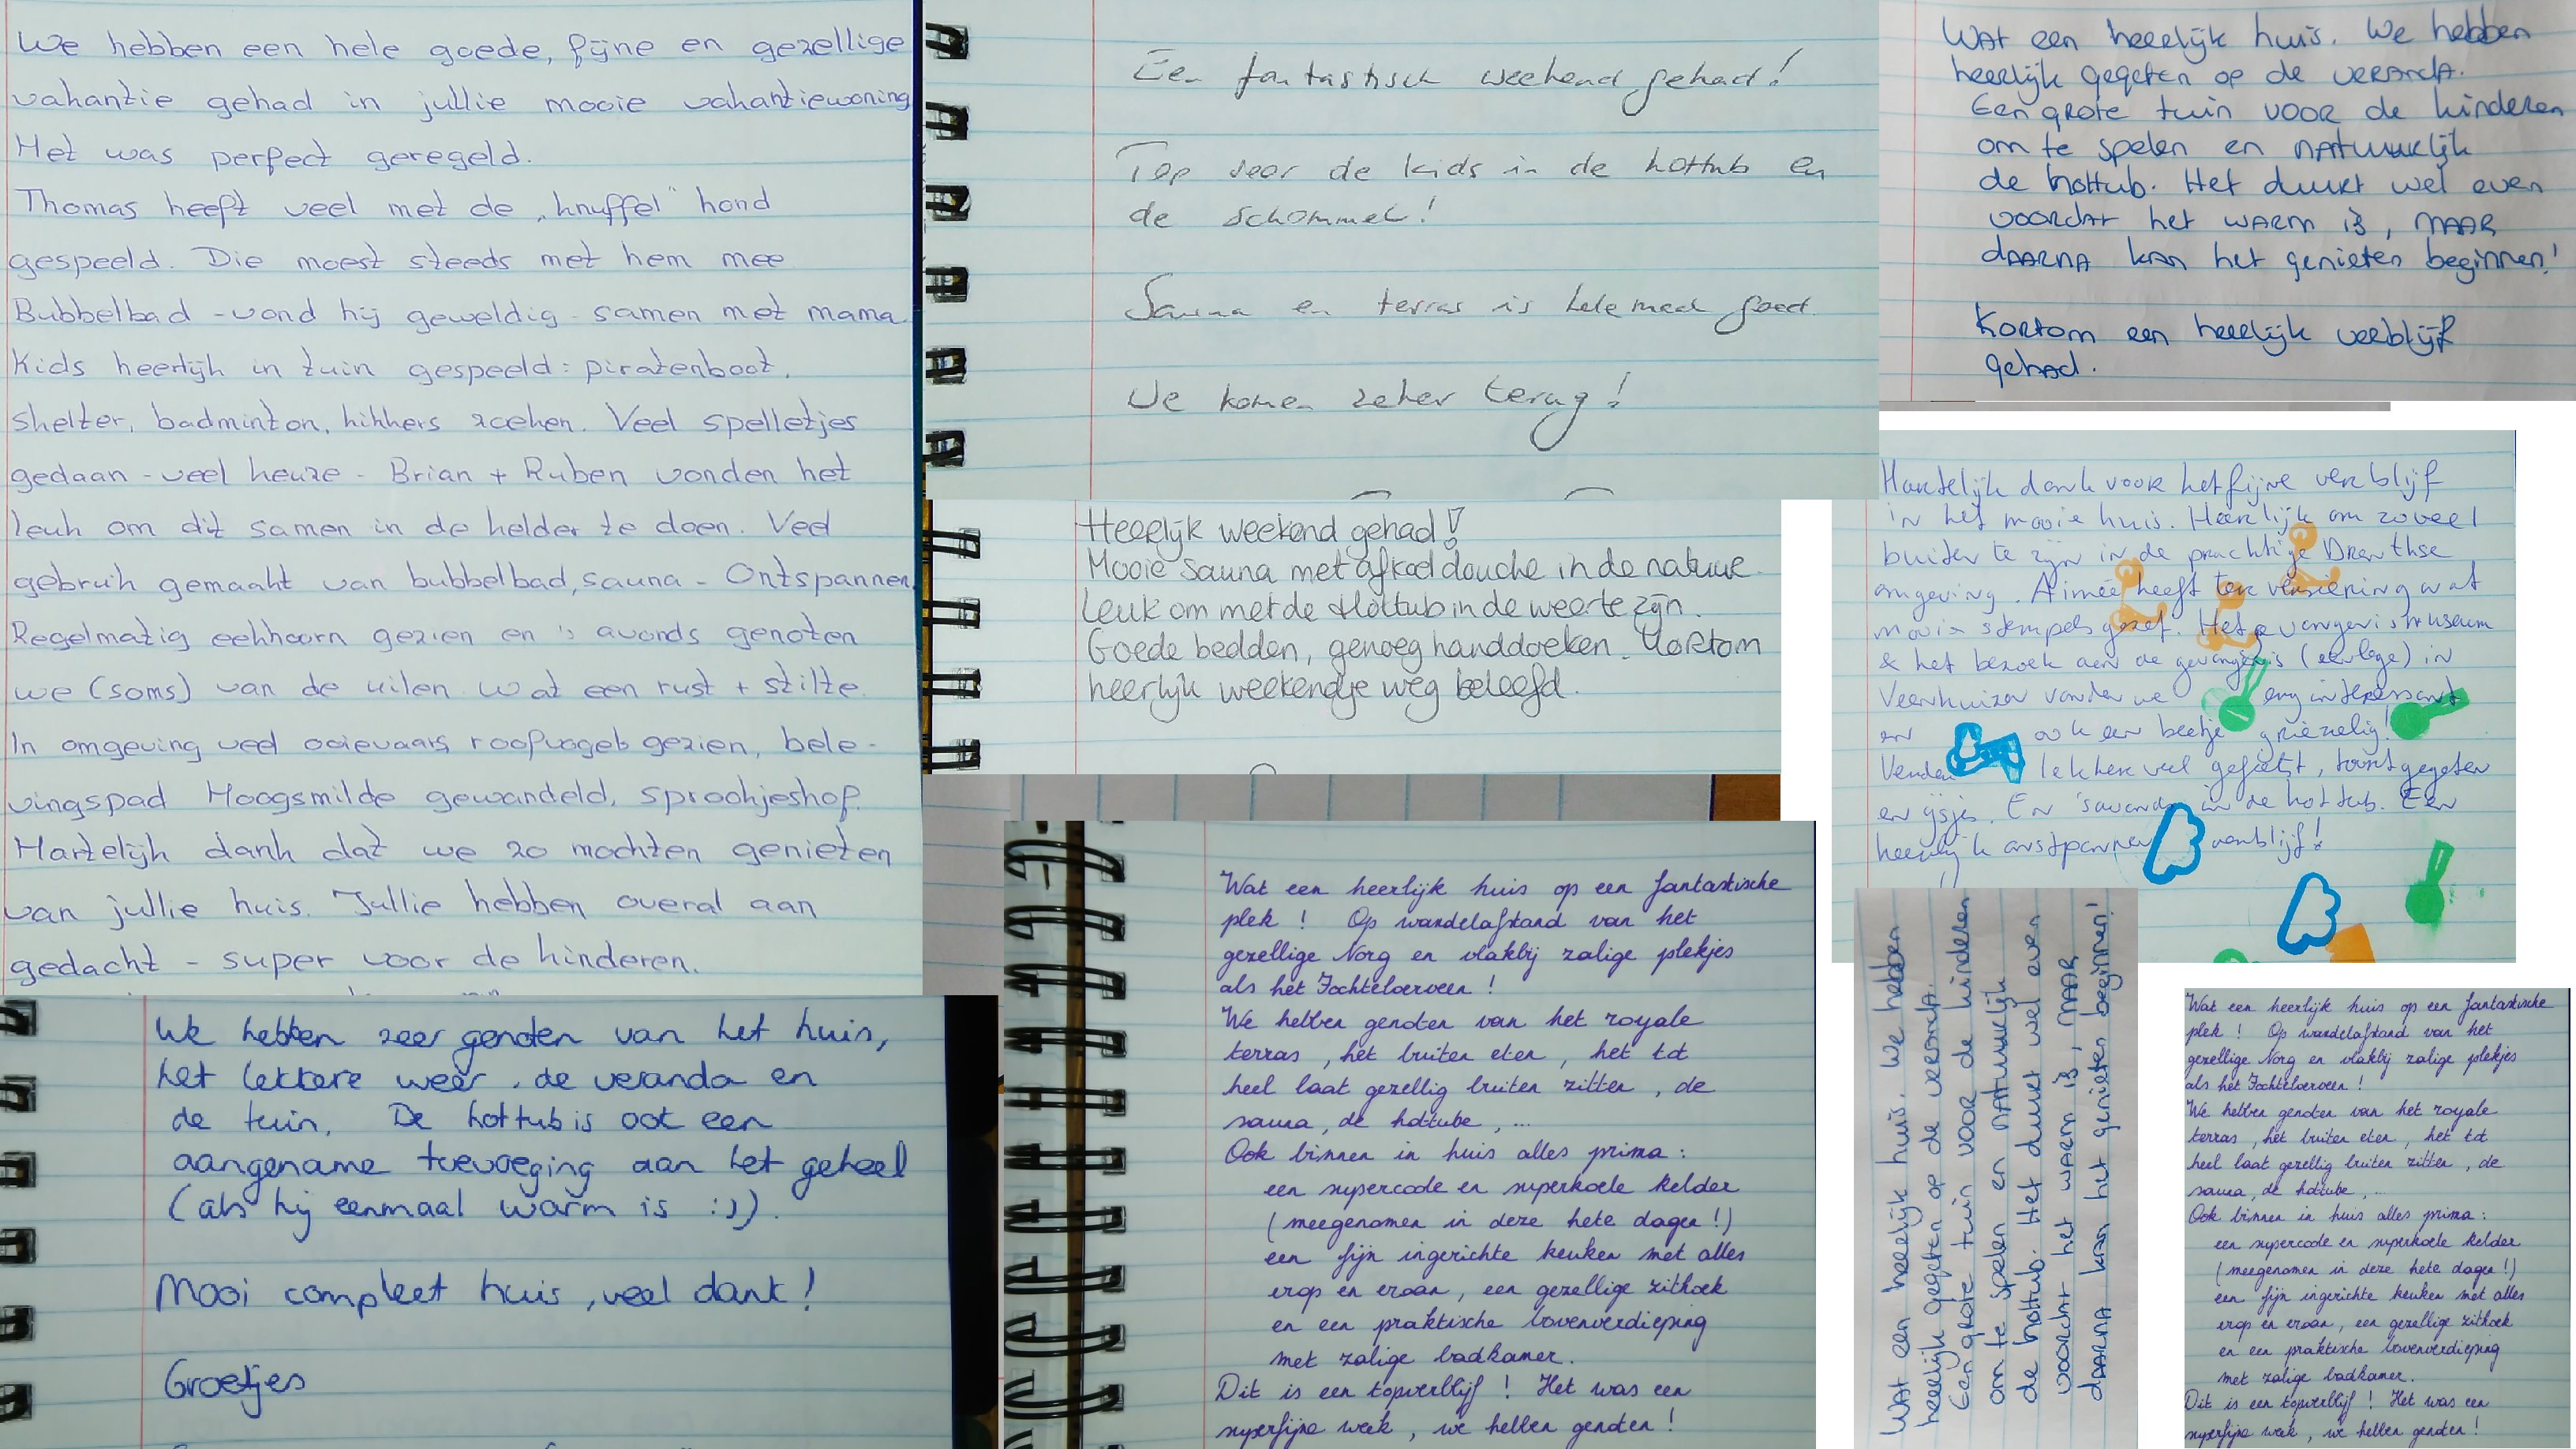 We hebben een hele goede, fijne en gezellige
vakantie gehad in jullie mooie vakantiewoning
Het was perfect geregeld.
Thomas heeft veel met de „knuffel" hond
gespeeld. Die moest steeds met hem mee
Bubbelbad - vond hij geweldig - samen met mama.
Kids heerlijk in tuin gespeeld: piratenboot,
shelter, badminton, kikkers zoeken. Veel spelletjes
gedaan - veel keuze - Brian + Ruben vonden het
leuk om dit samen in de kelder te doen. Veel
gebruik gemaakt van bubbelbad, sauna - Ontspannen.
Regelmatig eekhoorn gezien en 's avonds genoten
we (soms) van de uilen. wat een rust + stilte.
In omgeving veel ooievaars, roofvogels gezien, bele-
vingspad Hoogsmilde gewandeld, sprookjeshof.
Hartelijk dank dat we zo mochten genieten
van jullie huis. Jullie hebben overal aan
gedacht - super voor de kinderen.
Een fantastisch weekend gehad!
Top voor de kids in de hottub en
de schommel!
Sauna en terras is helemaal goed.
We komen zeker terug!
Wat een heerlijk huis. We hebben
heerlijk gegeten op de veranda.
Een grote tuin voor de kinderen
om te spelen en natuurlijk
de hottub. Het duurt wel even
voordat het warm is, maar
daarna kan het genieten beginnen!
Kortom een heerlijk verblijf
gehad.
Heerlijk weekend gehad!
Mooie sauna met afkoeldouche in de natuur.
Leuk om met de Hottub in de weer te zijn.
Goede bedden, genoeg handdoeken. Kortom
heerlijk weekendje weg beleefd.
Hartelijk dank voor het fijne verblijf
in het mooie huis. Heerlijk om zoveel
buiten te zijn in de prachtige Drenthse
omgeving. Aimée heeft ter versiering wat
mooie stempels gezet. Het gevangenismuseum
& het bezoek aan de gevangenis in
Veenhuizen vonden we erg interessant
en ook een beetje griezelig!
Verder lekker veel gefietst, taart gegeten
en ijsjes. En 's avonds in de hottub. Een
heerlijk ontspannen verblijf!
We hebben zeer genoten van het huis,
het lekkere weer, de veranda en
de tuin. De hottub is ook een
aangename toevoeging aan het geheel
(als hij eenmaal warm is :)).
Mooi compleet huis, veel dank!
Groetjes
Wat een heerlijk huis op een fantastische
plek ! Op wandelafstand van het
gezellige Norg en vlakbij zalige plekjes
als het Fochteloerveen !
We hebben genoten van het royale
terras, het buiten eten, het tot
heel laat gezellig buiten zitten, de
sauna, de hottube, ...
Ook binnen in huis alles prima :
een supercoole en superkoele kelder
(meegenomen in deze hete dagen !)
een fijn ingerichte keuken met alles
erop en eraan, een gezellige zithoek
en een praktische bovenverdieping
met zalige badkamer.
Dit is een topverblijf ! Het was een
superfijne week, we hebben genoten !
Wat een heerlijk huis. We hebben
heerlijk gegeten op de veranda.
Een grote tuin voor de kinderen
om te spelen en natuurlijk
de hottub. Het duurt wel even
voordat het warm is, maar
daarna kan het genieten beginnen!
Wat een heerlijk huis op een fantastische
plek ! Op wandelafstand van het
gezellige Norg en vlakbij zalige plekjes
als het Fochteloerveen !
We hebben genoten van het royale
terras, het buiten eten, het tot
heel laat gezellig buiten zitten, de
sauna, de hottube, ...
Ook binnen in huis alles prima :
een supercoole en superkoele kelder
(meegenomen in deze hete dagen !)
een fijn ingerichte keuken met alles
erop en eraan, een gezellige zithoek
en een praktische bovenverdieping
met zalige badkamer.
Dit is een topverblijf ! Het was een
superfijne week, we hebben genoten !